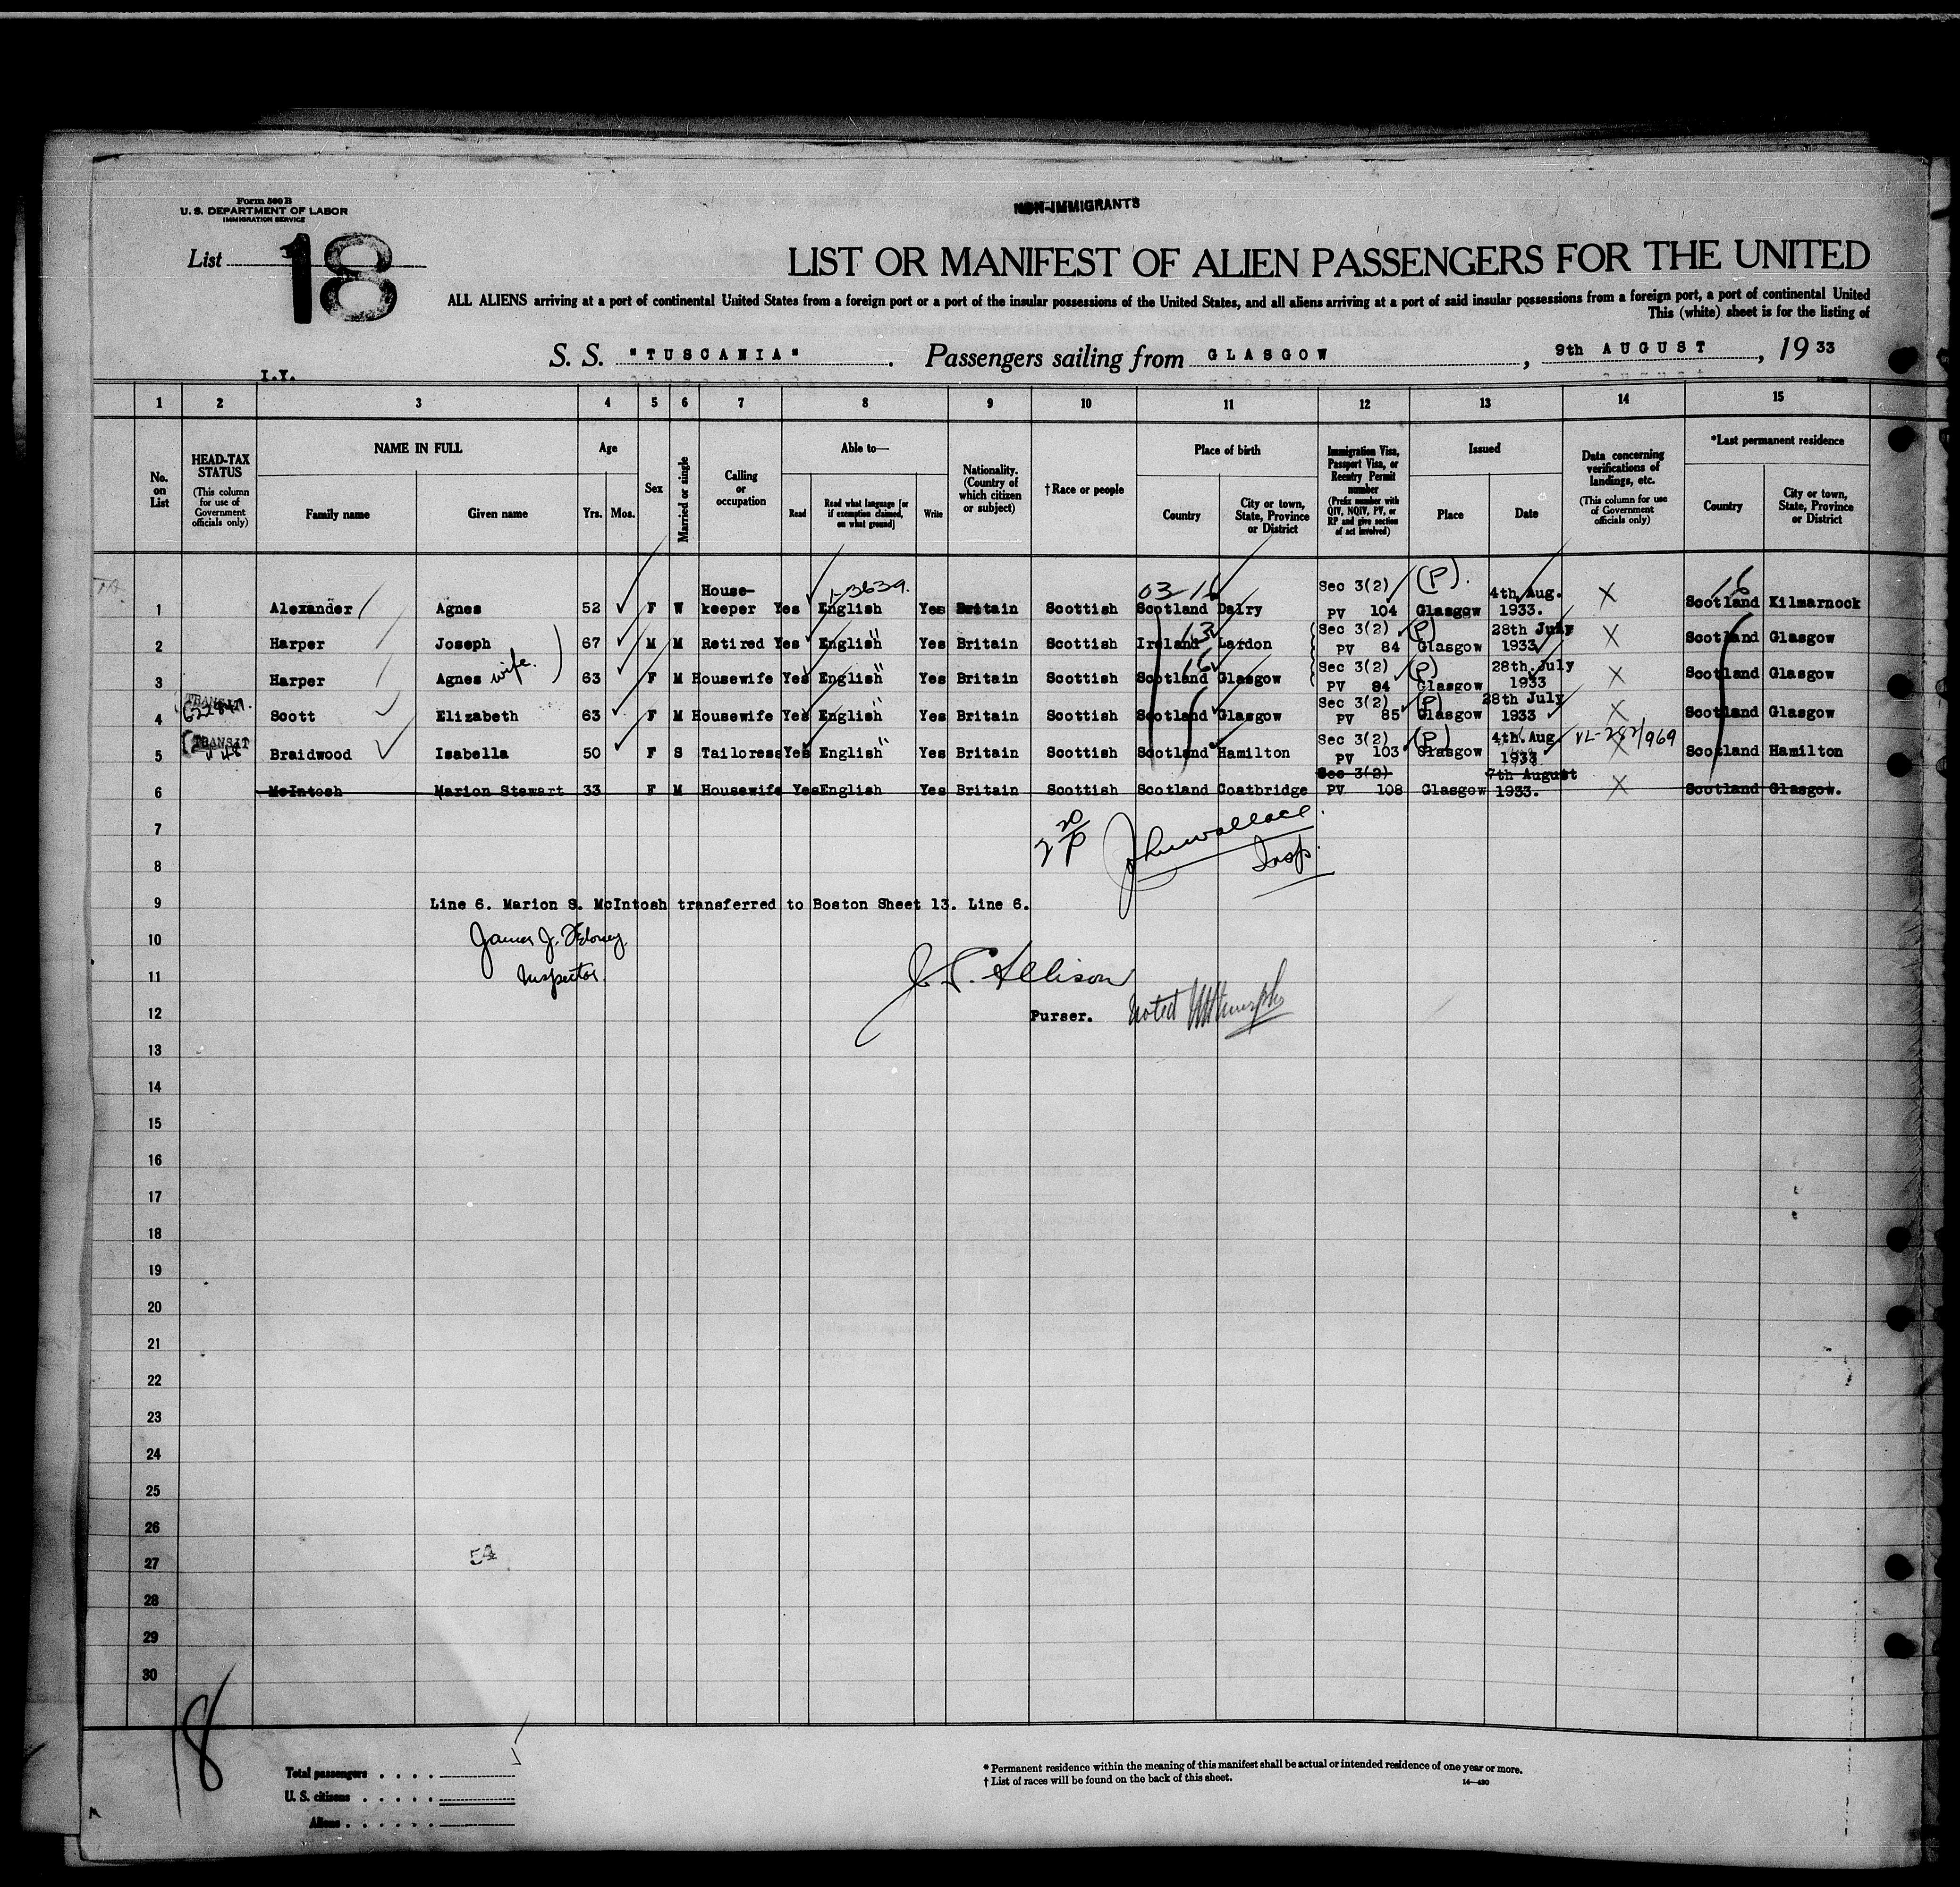 Form 500 B
U. S. DEPARTMENT OF LABOR
IMMIGRATION SERVICE
NON-IMMIGRANTS
List 18
LIST OR MANIFEST OF ALIEN PASSENGERS FOR THE UNITED
ALL ALIENS arriving at a port of continental United States from a foreign port or a port of the insular possessions of the United States, and all aliens arriving at a port of said insular possessions from a foreign port, a port of continental United
This (white) sheet is for the listing of
S. S. "TUSCANIA". Passengers sailing from GLASGOW, 9th AUGUST, 19 33
I.Y.
1 2 3 4 5 6 7 8 9 10 11 12 13 14 15
No. on List
HEAD-TAX STATUS
(This column for use of Government officials only)
NAME IN FULL
Family name Given name
Age
Yrs. Mos.
Sex
Married or single
Calling or occupation
Able to—
Read
Read what language [or if exemption claimed, on what ground]
Write
Nationality. (Country of which citizen or subject)
†Race or people
Place of birth
Country
City or town, State, Province or District
Immigration Visa, Passport Visa, or Reentry Permit number
(Prefix number with QIV, NQIV, PV, or RP and give section of act involved)
Issued
Place Date
Data concerning verifications of landings, etc.
(This column for use of Government officials only)
*Last permanent residence
Country
City or town, State, Province or District
1-3639. 03-16 (P). 16
1 Alexander Agnes 52 F W House-keeper Yes English Yes Britain Scottish Scotland Dalry Sec 3(2) PV 104 Glasgow 4th Aug. 1933. X Scotland Kilmarnock
2 Harper Joseph 67 M M Retired Yes English " Yes Britain Scottish Ireland 13 Lardon Sec 3(2) PV 84 (P) Glasgow 28th July 1933 X Scotland Glasgow
3 Harper Agnes wife. 63 F M Housewife Yes English " Yes Britain Scottish Scotland 16 Glasgow Sec 3(2) PV 84 (P) Glasgow 28th. July 1933 X Scotland Glasgow
TRANSIT
4 Scott Elizabeth 63 F M Housewife Yes English " Yes Britain Scottish Scotland Glasgow Sec 3(2) PV 85 (P) Glasgow 28th July 1933 X Scotland Glasgow
TRANSIT
5 Braidwood Isabella 50 F S Tailoress Yes English " Yes Britain Scottish Scotland Hamilton Sec 3(2) PV 103 (P) Glasgow 4th. Aug. 1933 X Scotland Hamilton
6 McIntosh Marion Stewart 33 F M Housewife Yes English Yes Britain Scottish Scotland Coatbridge Sec 3(2) PV 108 Glasgow 7th August 1933. X Scotland Glasgow.
7
John Wallace
8
Insp.
9 Line 6. Marion S. McIntosh transferred to Boston Sheet 13. Line 6.
10
James J.
11
Inspector
Allison
12 Purser. Noted
13
14
15
16
17
18
19
20
21
22
23
24
25
26
27
54
28
29
30
18
Total passengers . . . .
U. S. citizens . . . . .
Aliens . . . . . .
* Permanent residence within the meaning of this manifest shall be actual or intended residence of one year or more.
† List of races will be found on the back of this sheet.
14—430